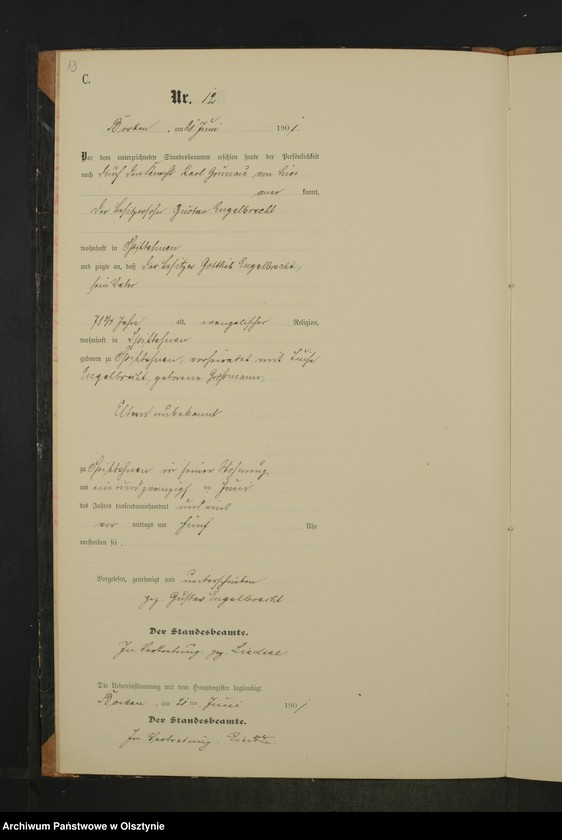 13
C.
Nr. 12
Borken, am 21. Juni 1901.
Vor dem unterzeichneten Standesbeamten erschien heute, der Persönlichkeit
nach durch den Karl Grunau von hier
aner kannt,
der Besitzersohn Gustav Engelbrecht
wohnhaft in
und zeigte an, daß der Besitzer Gottlieb Engelbrecht,
sein Vater
Jahre alt, evangelischer Religion,
wohnhaft in
geboren zu verheiratet mit Luise
Engelbrecht, geborene
Eltern unbekannt
zu in seiner Wohnung
am einundzwanzigsten Juni
des Jahres tausendneunhundert und eins
vor mittags um fünf Uhr
verstorben sei.
Vorgelesen, genehmigt und unterschrieben
gez. Gustav Engelbrecht
Der Standesbeamte.
In Vertretung. gez.
Die Uebereinstimmung mit dem Hauptregister beglaubigt
Borken, am 21 ten Juni 1901
Der Standesbeamte.
In Vertretung.
Archiwum Państwowe w Olsztynie